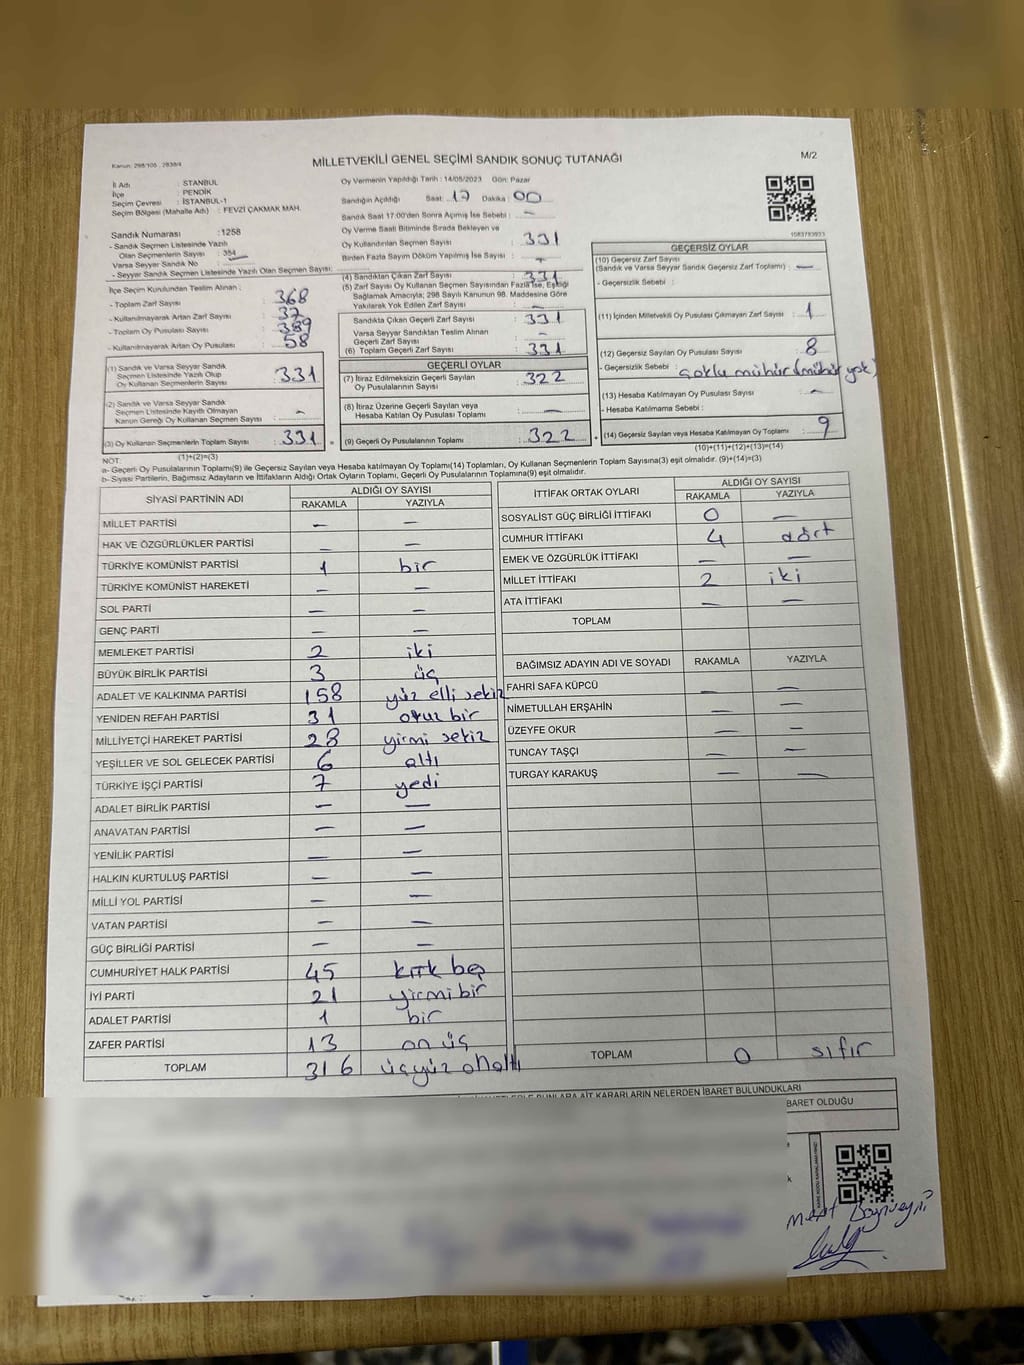 Kanun: 298/105 , 2839/4
MİLLETVEKİLİ GENEL SEÇİMİ SANDIK SONUÇ TUTANAĞI
M/2
İl Adı : STANBUL
İlçe : PENDİK
Seçim Çevresi : İSTANBUL-1
Seçim Bölgesi (Mahalle Adı) : FEVZİ ÇAKMAK MAH.
Sandık Numarası : 1258
- Sandık Seçmen Listesinde Yazılı
Olan Seçmenlerin Sayısı : 354
Varsa Seyyar Sandık No :
- Seyyar Sandık Seçmen Listesinde Yazılı Olan Seçmen Sayısı:
İlçe Seçim Kurulundan Teslim Alınan ;
- Toplam Zarf Sayısı : 368
- Kullanılmayarak Artan Zarf Sayısı : 37
- Toplam Oy Pusulası Sayısı : 389
- Kullanılmayarak Artan Oy Pusulası : 58
(1) Sandık ve Varsa Seyyar Sandık
Seçmen Listesinde Yazılı Olup
Oy Kullanan Seçmenlerin Sayısı : 331
(2) Sandık ve Varsa Seyyar Sandık
Seçmen Listesinde Kayıtlı Olmayan
Kanun Gereği Oy Kullanan Seçmen Sayısı : -
(3) Oy Kullanan Seçmenlerin Toplam Sayısı : 331
(1)+(2)=(3)
Oy Vermenin Yapıldığı Tarih : 14/05/2023 Gün: Pazar
Sandığın Açıldığı Saat: 17 Dakika: 00
Sandık Saat 17:00'den Sonra Açılmış İse Sebebi : -
Oy Verme Saati Bitiminde Sırada Bekleyen ve
Oy Kullandırılan Seçmen Sayısı : 331
Birden Fazla Sayım Döküm Yapılmış İse Sayısı : -
(4) Sandıktan Çıkan Zarf Sayısı : 331
(5) Zarf Sayısı Oy Kullanan Seçmen Sayısından Fazla İse, Eşitliği
Sağlamak Amacıyla; 298 Sayılı Kanunun 98. Maddesine Göre
Yakılarak Yok Edilen Zarf Sayısı : -
Sandıkta Çıkan Geçerli Zarf Sayısı : 331
Varsa Seyyar Sandıktan Teslim Alınan
Geçerli Zarf Sayısı : -
(6) Toplam Geçerli Zarf Sayısı : 331
GEÇERLİ OYLAR
(7) İtiraz Edilmeksizin Geçerli Sayılan
Oy Pusulalarının Sayısı : 322
(8) İtiraz Üzerine Geçerli Sayılan veya
Hesaba Katılan Oy Pusulası Toplamı : -
(9) Geçerli Oy Pusulalarının Toplamı : 322
1083793933
GEÇERSİZ OYLAR
(10) Geçersiz Zarf Sayısı
(Sandık ve Varsa Seyyar Sandık Geçersiz Zarf Toplamı) : -
- Geçersizlik Sebebi :
(11) İçinden Milletvekili Oy Pusulası Çıkmayan Zarf Sayısı : 1
(12) Geçersiz Sayılan Oy Pusulası Sayısı : 8
- Geçersizlik Sebebi : çoklu mühür (mühür yok)
(13) Hesaba Katılmayan Oy Pusulası Sayısı : -
- Hesaba Katılmama Sebebi :
(14) Geçersiz Sayılan veya Hesaba Katılmayan Oy Toplamı : 9
(10)+(11)+(12)+(13)=(14)
NOT:
a- Geçerli Oy Pusulalarının Toplamı(9) ile Geçersiz Sayılan veya Hesaba katılmayan Oy Toplamı(14) Toplamları, Oy Kullanan Seçmenlerin Toplam Sayısına(3) eşit olmalıdır. (9)+(14)=(3)
b- Siyasi Partilerin, Bağımsız Adayların ve İttifakların Aldığı Ortak Oyların Toplamı, Geçerli Oy Pusulalarının Toplamına(9) eşit olmalıdır.
SİYASİ PARTİNİN ADI ALDIĞI OY SAYISI
RAKAMLA YAZIYLA
MİLLET PARTİSİ - -
HAK VE ÖZGÜRLÜKLER PARTİSİ - -
TÜRKİYE KOMÜNİST PARTİSİ 1 bir
TÜRKİYE KOMÜNİST HAREKETİ - -
SOL PARTİ - -
GENÇ PARTİ - -
MEMLEKET PARTİSİ 2 iki
BÜYÜK BİRLİK PARTİSİ 3 üç
ADALET VE KALKINMA PARTİSİ 158 yüz elli sekiz
YENİDEN REFAH PARTİSİ 31 otuz bir
MİLLİYETÇİ HAREKET PARTİSİ 28 yirmi sekiz
YEŞİLLER VE SOL GELECEK PARTİSİ 6 altı
TÜRKİYE İŞÇİ PARTİSİ 7 yedi
ADALET BİRLİK PARTİSİ - -
ANAVATAN PARTİSİ - -
YENİLİK PARTİSİ - -
HALKIN KURTULUŞ PARTİSİ - -
MİLLİ YOL PARTİSİ - -
VATAN PARTİSİ - -
GÜÇ BİRLİĞİ PARTİSİ - -
CUMHURİYET HALK PARTİSİ 45 kırk beş
İYİ PARTİ 21 yirmi bir
ADALET PARTİSİ 1 bir
ZAFER PARTİSİ 13 on üç
TOPLAM 316 üçyüz onaltı
İTTİFAK ORTAK OYLARI ALDIĞI OY SAYISI
RAKAMLA YAZIYLA
SOSYALİST GÜÇ BİRLİĞİ İTTİFAKI 0 -
CUMHUR İTTİFAKI 4 dört
EMEK VE ÖZGÜRLÜK İTTİFAKI - -
MİLLET İTTİFAKI 2 iki
ATA İTTİFAKI - -
TOPLAM
BAĞIMSIZ ADAYIN ADI VE SOYADI RAKAMLA YAZIYLA
FAHRİ SAFA KÜPCÜ - -
NİMETULLAH ERŞAHİN - -
ÜZEYFE OKUR - -
TUNCAY TAŞÇI - -
TURGAY KARAKUŞ - -
TOPLAM 0 sıfır
BUNLARA AİT KARARLARIN NELERDEN İBARET BULUNDUKLARI
BARET OLDUĞU
Mert